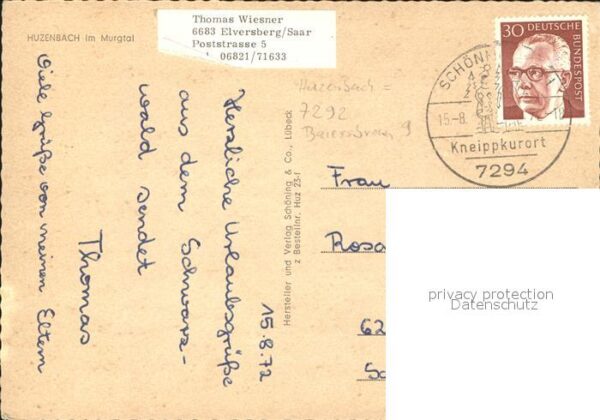 HUZENBACH im Murgtal
Thomas Wiesner
6683 Elversberg/Saar
Poststrasse 5
06821/71633
30 DEUTSCHE
BUNDESPOST
15.-8.
Kneippkurort
7294
Huzenbach =
7292
Baiersbronn 9
15.8.72
Herzliche Urlaubsgrüße
aus dem Schwarz-
wald sendet
Thomas
Viele Grüße von meinen Eltern
Hersteller und Verlag Schöning & Co., Lübeck
z Bestellnr. Huz 25-1
Frau
Rosa
62
privacy protection
Datenschutz